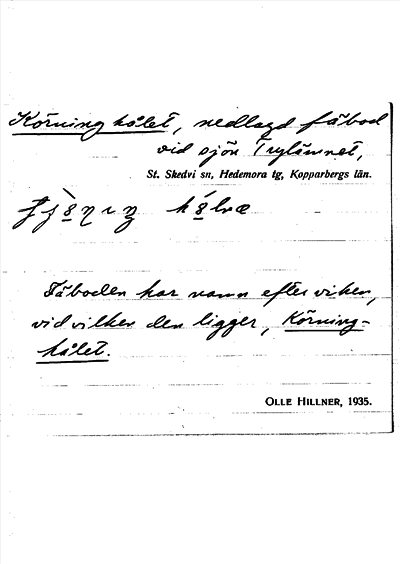 Körninghålet, nedlagd fäbod
vid sjön Trylännet,
St. Skedvi sn, Hedemora tg, Kopparbergs län.
Fäboden har namn efter viken,
vid vilken den ligger, Körning-
hålet.
OLLE HILLNER, 1935.